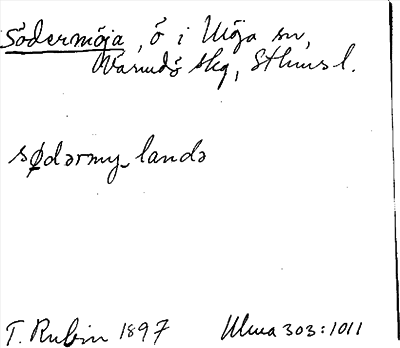 Södermöja, ö i Möja sn,
Värmdö skg, Sthms l.
sødərmy_landə
T. Rubin 1897 Ulma 303:1011